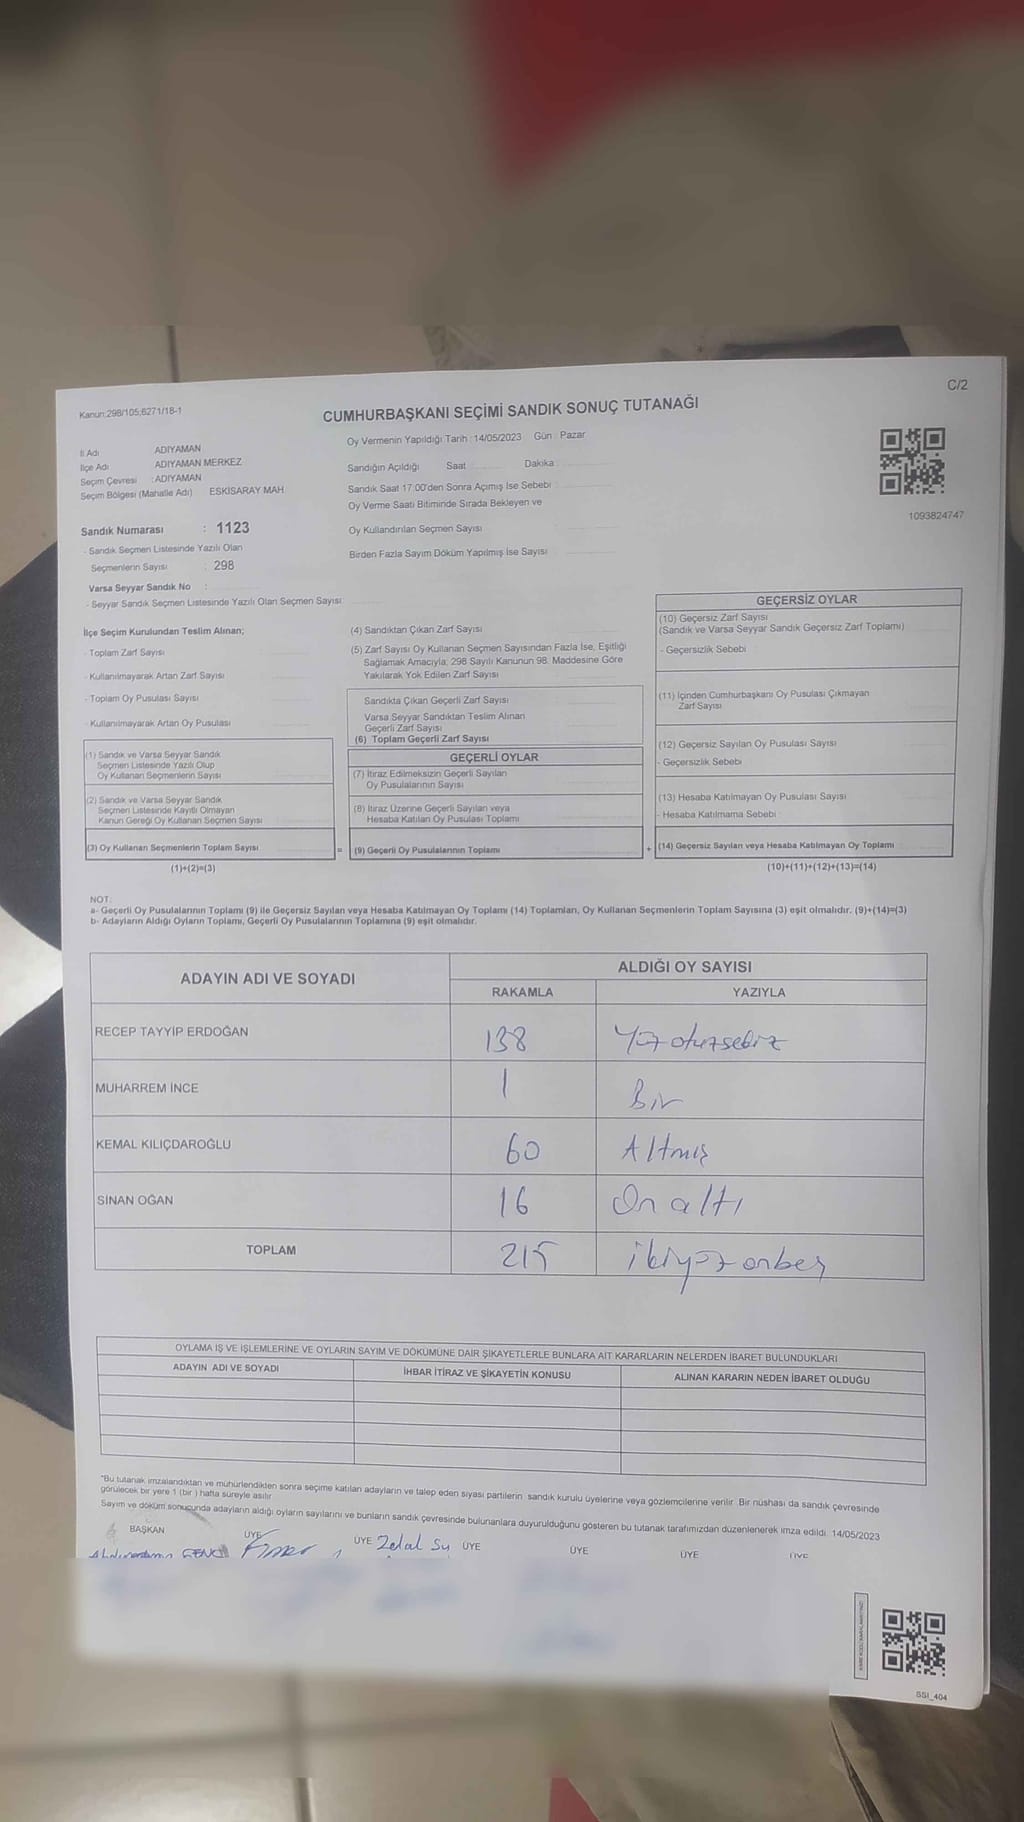 Kanun:298/105;6271/18-1
C/2
CUMHURBAŞKANI SEÇİMİ SANDIK SONUÇ TUTANAĞI
İl Adı ADIYAMAN
İlçe Adı ADIYAMAN MERKEZ
Seçim Çevresi : ADIYAMAN
Seçim Bölgesi (Mahalle Adı) ESKİSARAY MAH.
Sandık Numarası : 1123
- Sandık Seçmen Listesinde Yazılı Olan
Seçmenlerin Sayısı : 298
Varsa Seyyar Sandık No :
- Seyyar Sandık Seçmen Listesinde Yazılı Olan Seçmen Sayısı
Oy Vermenin Yapıldığı Tarih : 14/05/2023 Gün : Pazar
Sandığın Açıldığı Saat Dakika
Sandık Saat 17:00'den Sonra Açımış İse Sebebi
Oy Verme Saati Bitiminde Sırada Bekleyen ve
Oy Kullandırılan Seçmen Sayısı
Birden Fazla Sayım Döküm Yapılmış İse Sayısı
1093824747
İlçe Seçim Kurulundan Teslim Alınan;
- Toplam Zarf Sayısı
- Kullanılmayarak Artan Zarf Sayısı
- Toplam Oy Pusulası Sayısı
- Kullanılmayarak Artan Oy Pusulası
(1) Sandık ve Varsa Seyyar Sandık
Seçmen Listesinde Yazılı Olup
Oy Kullanan Seçmenlerin Sayısı
(2) Sandık ve Varsa Seyyar Sandık
Seçmen Listesinde Kayıtlı Olmayan
Kanun Gereği Oy Kullanan Seçmen Sayısı
(3) Oy Kullanan Seçmenlerin Toplam Sayısı
(1)+(2)=(3)
(4) Sandıktan Çıkan Zarf Sayısı
(5) Zarf Sayısı Oy Kullanan Seçmen Sayısından Fazla İse, Eşitliği
Sağlamak Amacıyla; 298 Sayılı Kanunun 98. Maddesine Göre
Yakılarak Yok Edilen Zarf Sayısı
Sandıkta Çıkan Geçerli Zarf Sayısı
Varsa Seyyar Sandıktan Teslim Alınan
Geçerli Zarf Sayısı
(6) Toplam Geçerli Zarf Sayısı
GEÇERLİ OYLAR
(7) İtiraz Edilmeksizin Geçerli Sayılan
Oy Pusulalarının Sayısı
(8) İtiraz Üzerine Geçerli Sayılan veya
Hesaba Katılan Oy Pusulası Toplamı
= (9) Geçerli Oy Pusulalarının Toplamı
GEÇERSİZ OYLAR
(10) Geçersiz Zarf Sayısı
(Sandık ve Varsa Seyyar Sandık Geçersiz Zarf Toplamı)
- Geçersizlik Sebebi
(11) İçinden Cumhurbaşkanı Oy Pusulası Çıkmayan
Zarf Sayısı
(12) Geçersiz Sayılan Oy Pusulası Sayısı
- Geçersizlik Sebebi
(13) Hesaba Katılmayan Oy Pusulası Sayısı
- Hesaba Katılmama Sebebi
+ (14) Geçersiz Sayılan veya Hesaba Katılmayan Oy Toplamı
(10)+(11)+(12)+(13)=(14)
NOT.
a- Geçerli Oy Pusulalarının Toplamı (9) ile Geçersiz Sayılan veya Hesaba Katılmayan Oy Toplamı (14) Toplamları, Oy Kullanan Seçmenlerin Toplam Sayısına (3) eşit olmalıdır. (9)+(14)=(3)
b- Adayların Aldığı Oyların Toplamı, Geçerli Oy Pusulalarının Toplamına (9) eşit olmalıdır.
ADAYIN ADI VE SOYADI ALDIĞI OY SAYISI
RAKAMLA YAZIYLA
RECEP TAYYİP ERDOĞAN 138 Yüzotuzsekiz
MUHARREM İNCE 1 Bir
KEMAL KILIÇDAROĞLU 60 Altmış
SİNAN OĞAN 16 On altı
TOPLAM 215 ikiyüz onbeş
OYLAMA İŞ VE İŞLEMLERİNE VE OYLARIN SAYIM VE DÖKÜMÜNE DAİR ŞİKAYETLERLE BUNLARA AİT KARARLARIN NELERDEN İBARET BULUNDUKLARI
ADAYIN ADI VE SOYADI İHBAR İTİRAZ VE ŞİKAYETİN KONUSU ALINAN KARARIN NEDEN İBARET OLDUĞU
*Bu tutanak imzalandıktan ve mühürlendikten sonra seçime katılan adayların ve talep eden siyasi partilerin sandık kurulu üyelerine veya gözlemcilerine verilir. Bir nüshası da sandık çevresinde
görülecek bir yere 1 (bir) hafta süreyle asılır.
Sayım ve döküm sonucunda adayların aldığı oyların sayılarını ve bunların sandık çevresinde bulunanlara duyurulduğunu gösteren bu tutanak tarafımızdan düzenlenerek imza edildi. 14/05/2023
BAŞKAN ÜYE ÜYE Zelal Su ÜYE ÜYE ÜYE ÜYE
GENÇ
SSI_404